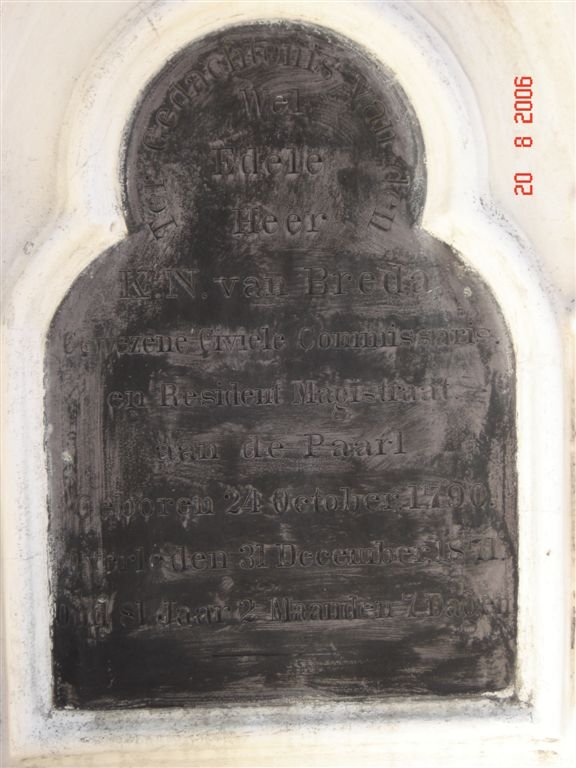 Ter Gedachtenis van den
Wel
Edele
Heer
K. N. van Breda
Gewezene Civiele Commissaris
en Resident Magistraat
aan de Paarl
Geboren 24 October 1790
Overleden 31 December 1871.
Oud 81 Jaar 2 Maanden 7 Dagen
20 8 2006